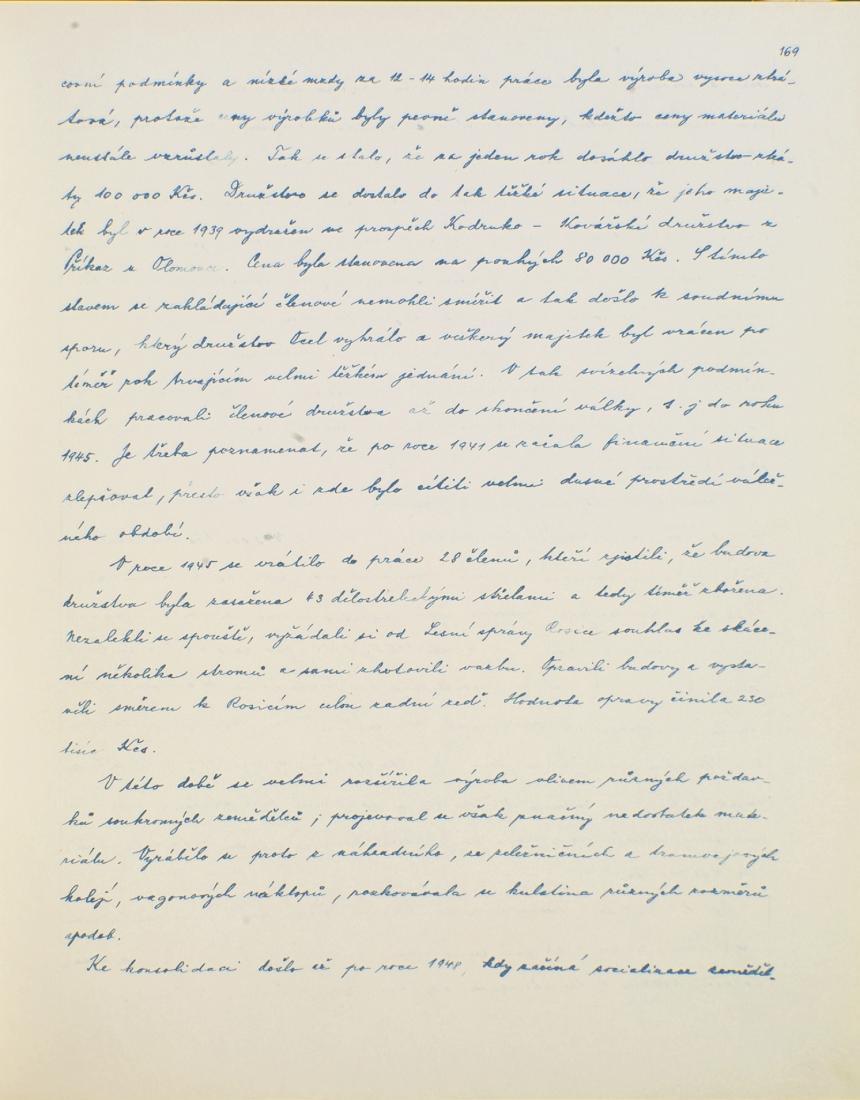 169
covní podmínky a nízké mzdy za 12 - 14 hodin práce byla výroba vysoce ztrá-
tová, protože ceny výrobků byly pevně stanoveny, kdežto ceny materiálu
neustále vzrůstaly. Tak se stalo, že za jeden rok dosáhlo družstvo ztrá-
ty 100 000 Kčs. Družstvo se dostalo do tak těžké situace, že jeho maje-
tek byl v roce 1939 vydražen ve prospěch Kodruko - Kovářské družstvo z
Příkaz u Olomouce. Cena byla stanovena na pouhých 80 000 Kčs. S tímto
stavem se zakládající členové nemohli smířit a tak došlo k soudnímu
sporu, který družstvo Ocel vyhrálo a veškerý majetek byl vrácen po
téměř rok trvajícím velmi těžkém jednání. V tak svízelných podmín-
kách pracovali členové družstva až do skončení války, t. j do roku
1945. Je třeba poznamenat, že po roce 1941 se začala finanční situace
zlepšovat, přesto však i zde bylo cítiti velmi dusné prostředí váleč-
ného období.
V roce 1945 se vrátilo do práce 28 členů, kteří zjistili, že budova
družstva byla zasažena 43 dělostřeleckými střelami a tedy téměř zbořena.
Nezalekli se spouště, vyžádali si od Lesní správy Rosice souhlas ke skáce-
ní několika stromů a sami zhotovili vazbu. Opravili budovy a vysta-
věli směrem k Rosicím celou zadní zeď. Hodnota opravy činila 230
tisíc Kčs.
V této době se velmi rozšířila výroba vlivem různých poždav-
ků soukromých zemědělců; projevoval se však značný nedostatek mate-
riálu. Vyrábělo se proto z náhradního, ze železničních a tramvajových
kolejí, vagonových náklopů, rozkovávala se kulatina různých rozměrů
apodob.
Ke konsolidaci došlo až po roce 1948, kdy začíná socializace zeměděl-